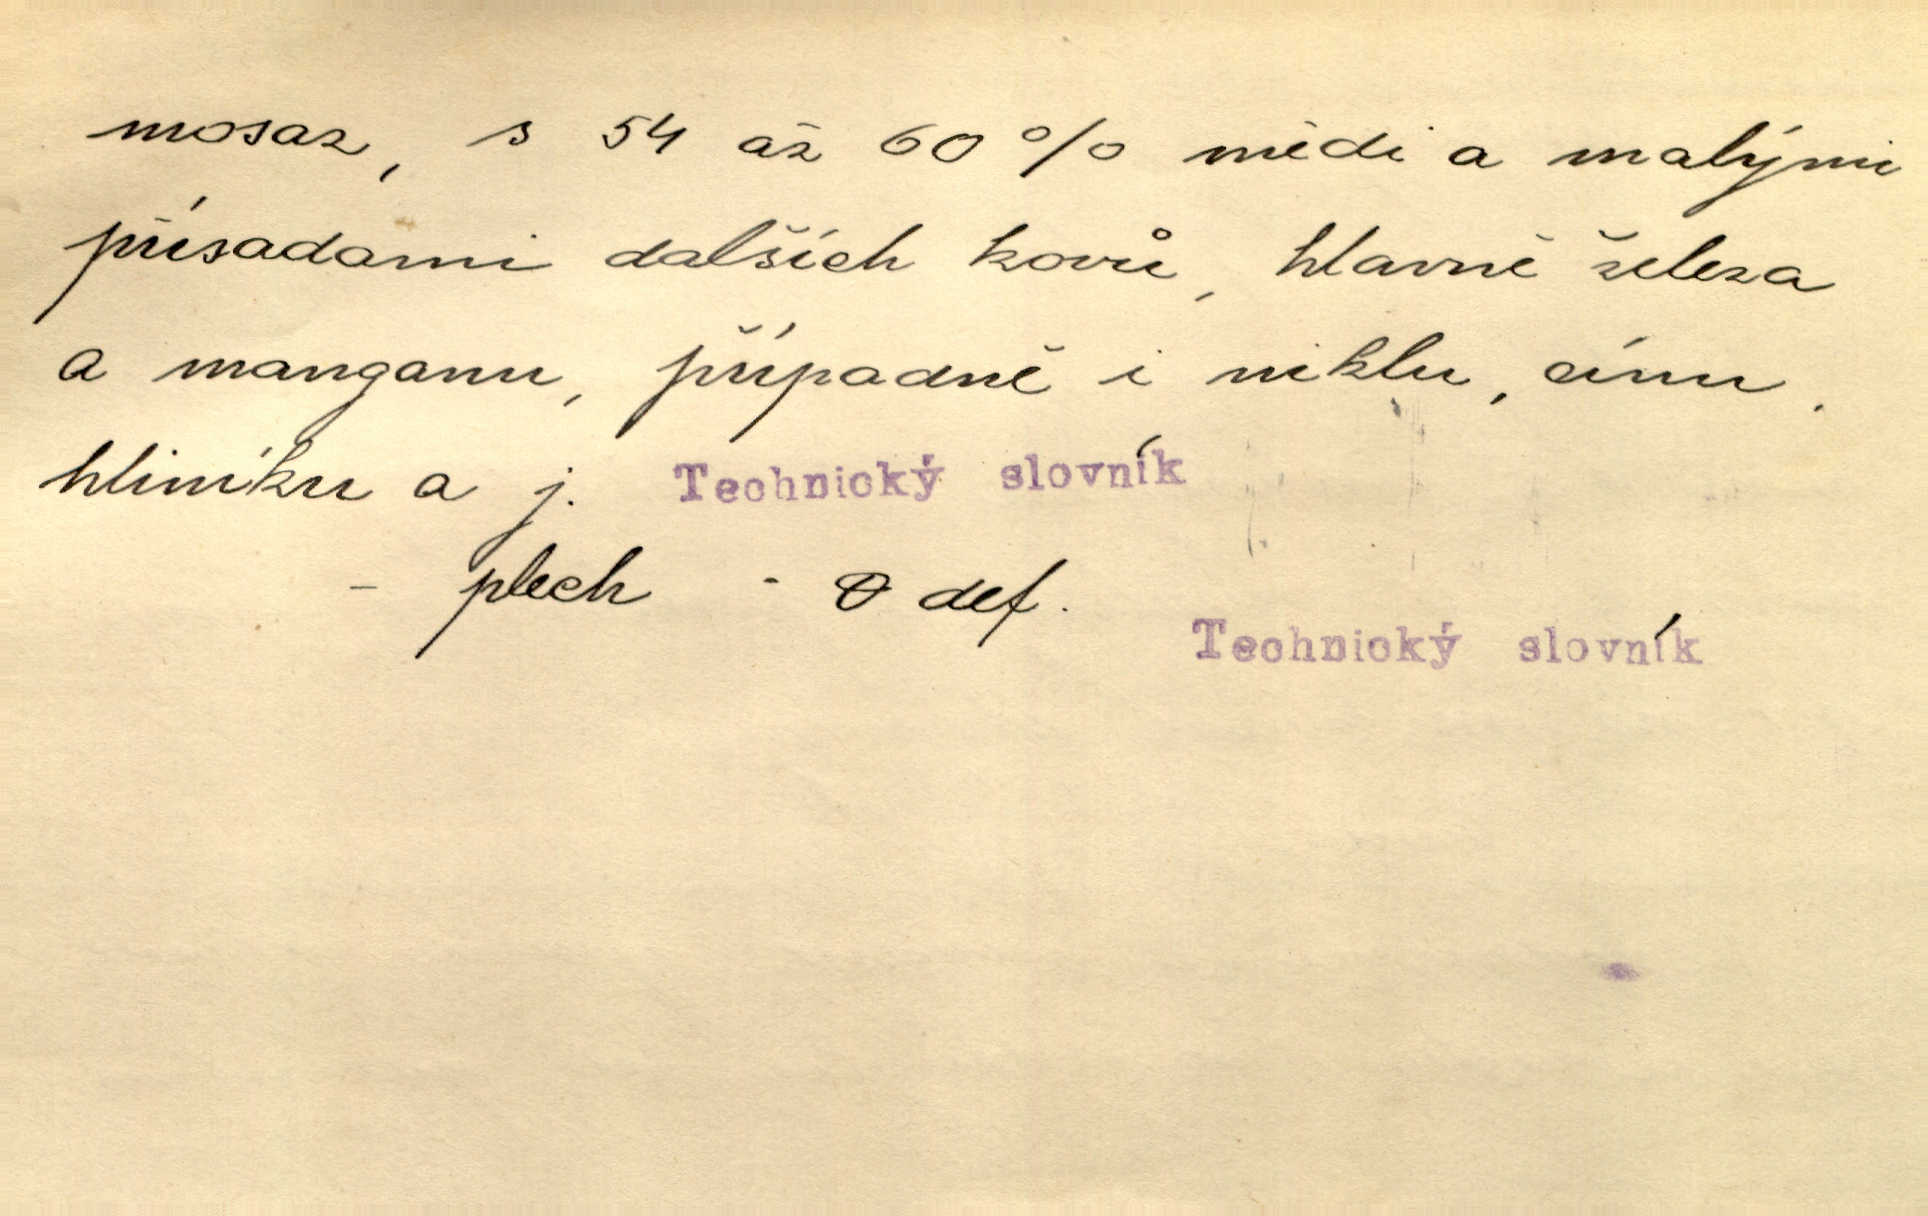 mosaz, s 54 až 60 % mědi a malými
přísadami dalších kovů, hlavně železa
a manganu, případně i niklu, cínu,
hliníku a j. Technický slovník
- plech - 0 def.
Technický slovník